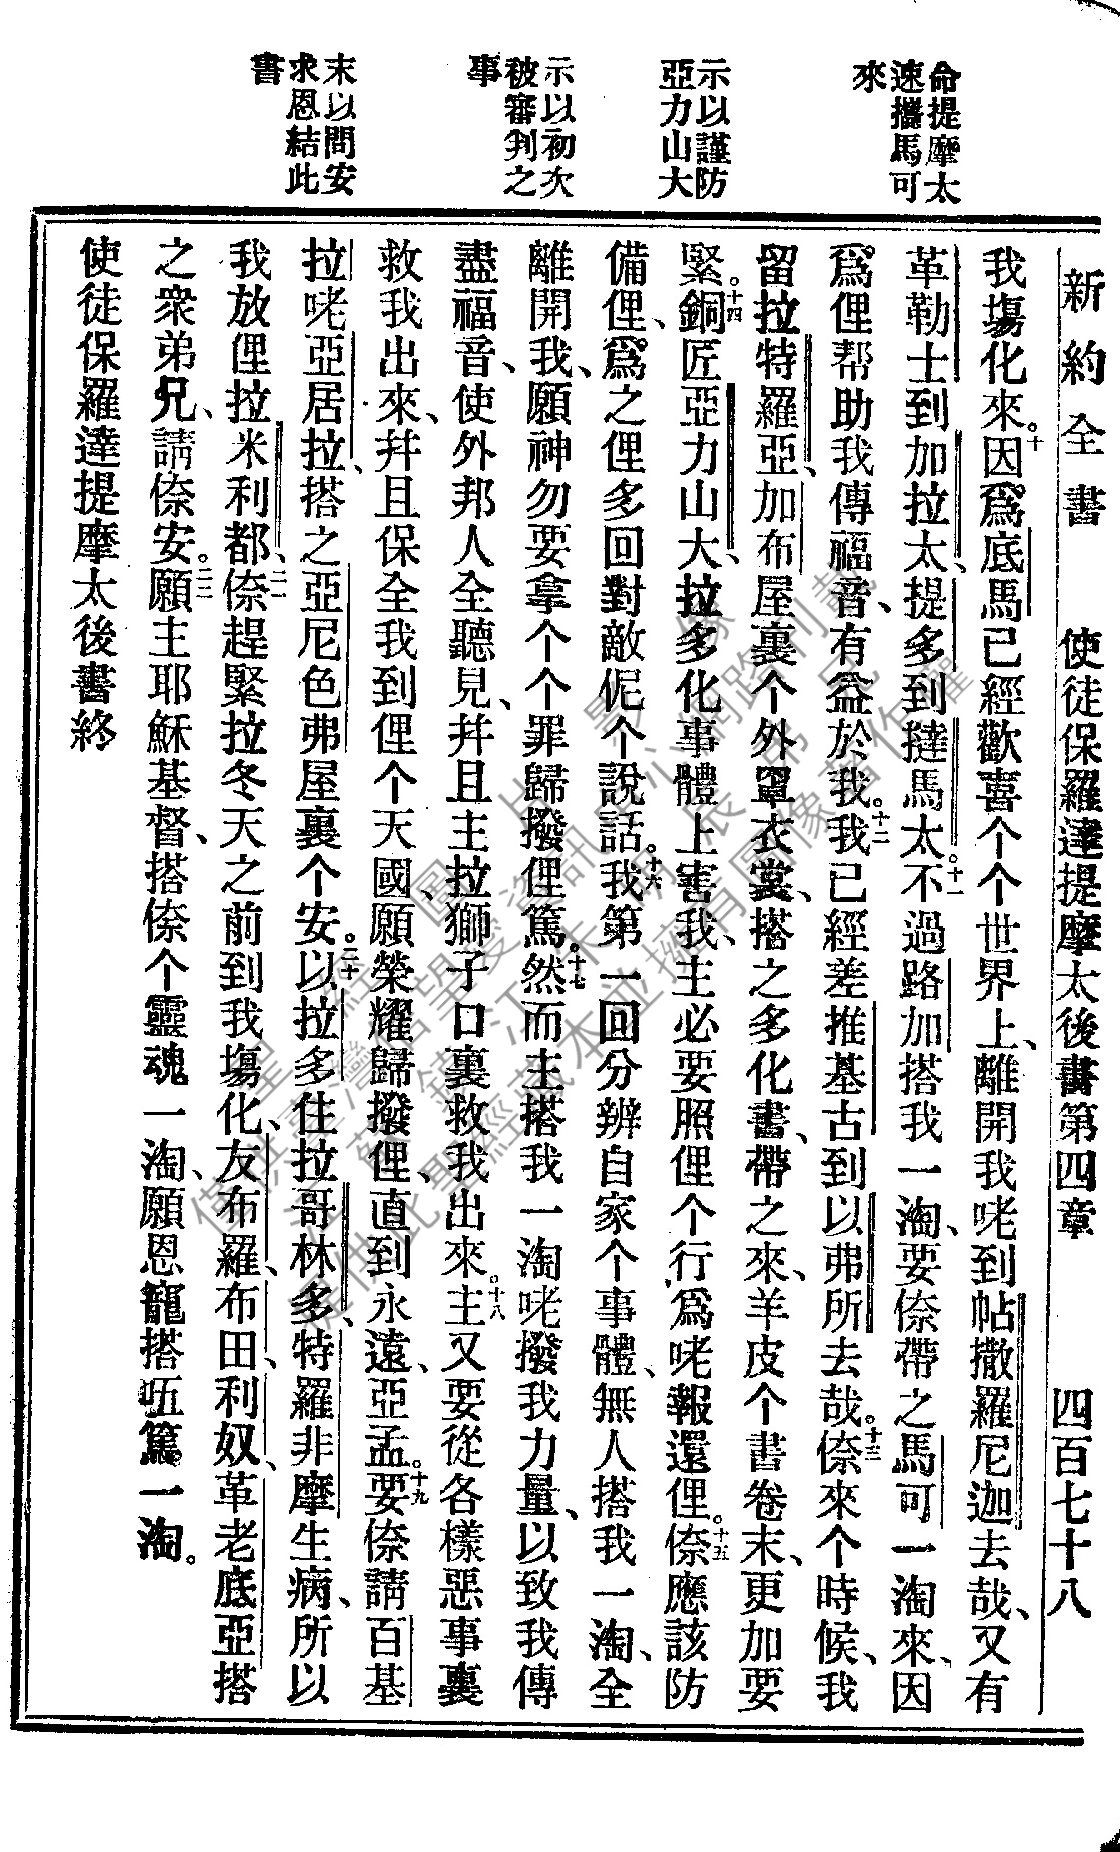 命提摩太
速攜馬可
來
示以謹防
亞力山大
示以初次
被審判之
事
末以問安
求恩結此
書
新約全書 使徒保羅達提摩太後書第四章 四百七十八
我塲化來。十因爲底馬已經歡喜个个世界上、離開我咾到帖撒羅尼迦去哉、又有
革勒士到加拉太、提多到撻馬太。十一不過路加搭我一淘、要倷帶之馬可一淘來、因
爲俚帮助我傳福音、有益於我。十二我已經差推基古到以弗所去哉。十三倷來个時候、我
留拉特羅亞、加布屋裏个外罩衣裳、搭之多化書、帶之來、羊皮个書卷末、更加要
緊。十四銅匠亞力山大、拉多化事體上害我、主必要照俚个行爲咾報還俚。十五倷應該防
備俚、爲之俚多回對敵伲个說話。十六我第一回分辨自家个事體、無人搭我一淘、全
離開我、願神勿要拿个个罪歸撥俚篤。十七然而主搭我一淘咾撥我力量、以致我傳
盡福音、使外邦人全聽見、幷且主拉獅子口裏救我出來。十八主又要從各樣惡事裏
救我出來、幷且保全我到俚个天國、願榮耀歸撥俚、直到永遠、亞孟。十九要倷請百基
拉咾亞居拉、搭之亞尼色弗屋裏个安。二十以拉多住拉哥林多、特羅非摩生病、所以
我放俚拉米利都、二一倷趕緊拉冬天之前到我塲化、友布羅、布田、利奴、革老底亞搭
之衆弟兄、請倷安。二二願主耶穌基督、搭倷个靈魂一淘、願恩寵搭㕶篤一淘。
使徒保羅達提摩太後書終